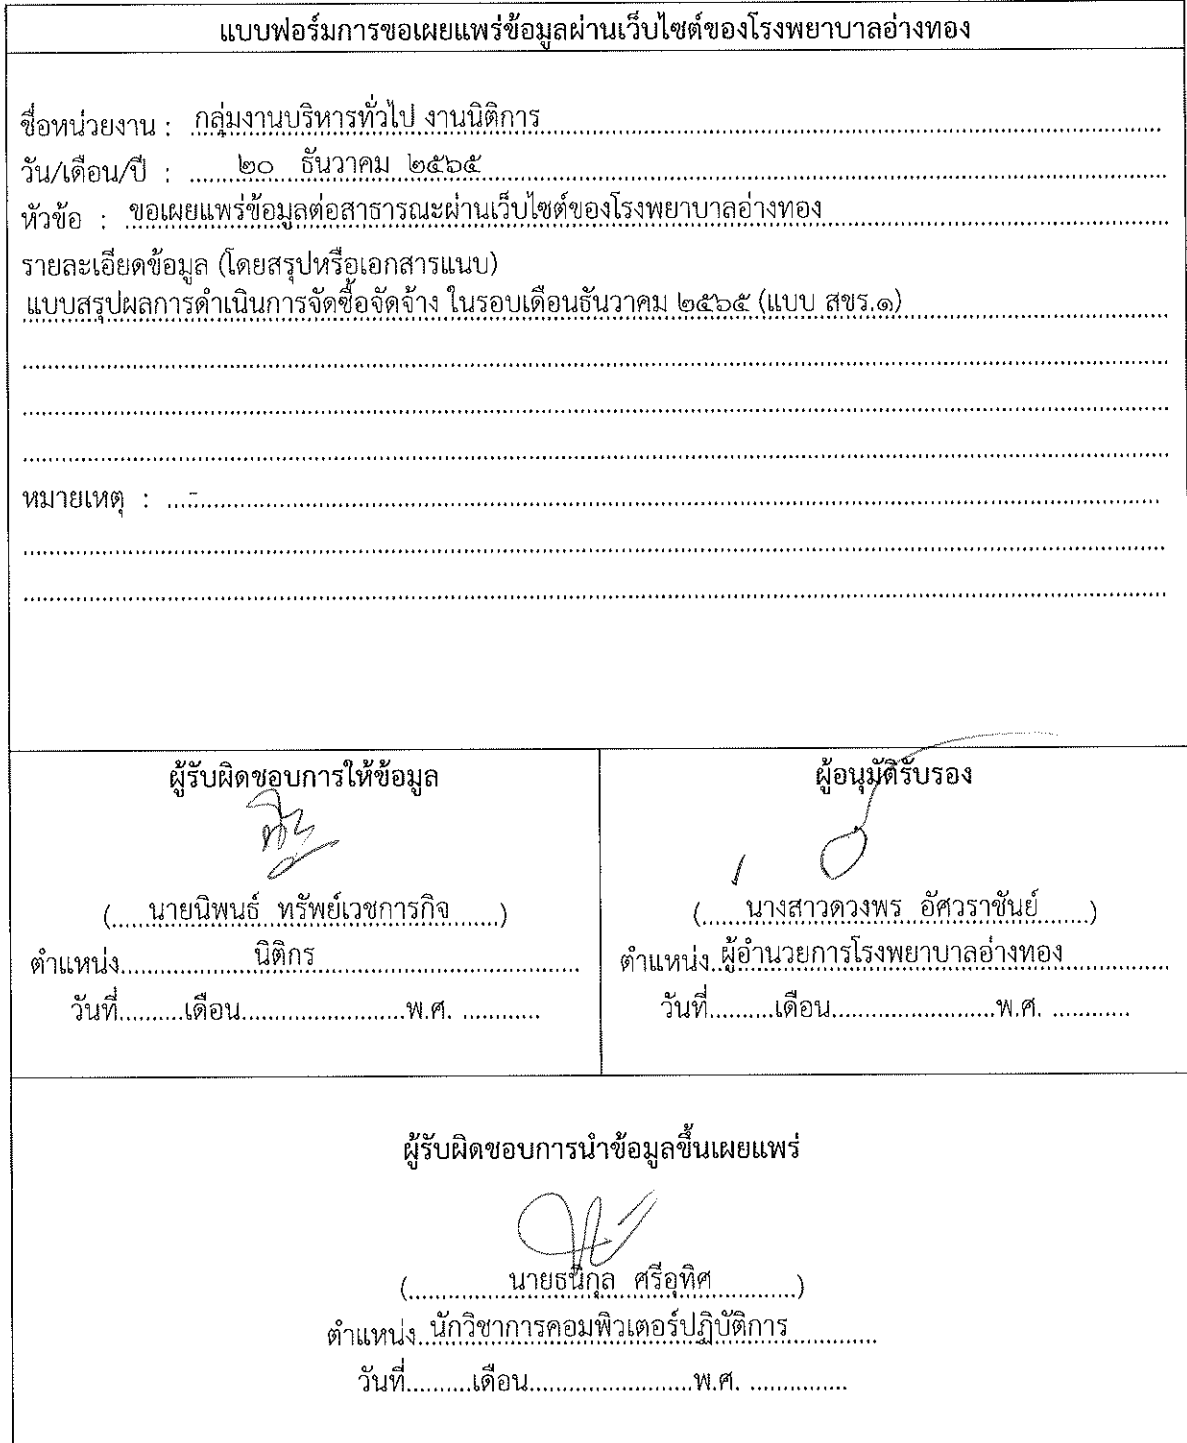 แบบฟอร์มการขอเผยแพร่ข้อมูลผ่านเว็บไซต์ของโรงพยาบาลอ่างทอง
ชื่อหน่วยงาน : กลุ่มงานบริหารทั่วไป งานนิติการ
วัน/เดือน/ปี : ๒๐ ธันวาคม ๒๕๖๕
หัวข้อ : ขอเผยแพร่ข้อมูลต่อสาธารณะผ่านเว็บไซต์ของโรงพยาบาลอ่างทอง
รายละเอียดข้อมูล (โดยสรุปหรือเอกสารแนบ)
แบบสรุปผลการดำเนินการจัดซื้อจัดจ้าง ในรอบเดือนธันวาคม ๒๕๖๕ (แบบ สขร.๑)
หมายเหตุ : ...-...
ผู้รับผิดชอบการให้ข้อมูล
(....นายนิพนธ์ ทรัพย์เวชการกิจ......)
ตำแหน่ง....นิติกร....
วันที่..........เดือน.........................พ.ศ. ............
ผู้อนุมัติรับรอง
(......นางสาวดวงพร อัศวราชันย์.......)
ตำแหน่ง..ผู้อำนวยการโรงพยาบาลอ่างทอง
วันที่..........เดือน.........................พ.ศ. ............
ผู้รับผิดชอบการนำข้อมูลขึ้นเผยแพร่
(...............นายธนิกุล ศรีอุทิศ.............)
ตำแหน่ง..นักวิชาการคอมพิวเตอร์ปฏิบัติการ..............
วันที่..........เดือน.........................พ.ศ. ...............